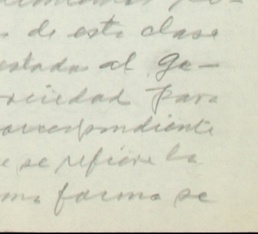 s de esta clase
estado al Ge-
ociedad para
correspondiente
e se refiere la
ma forma se